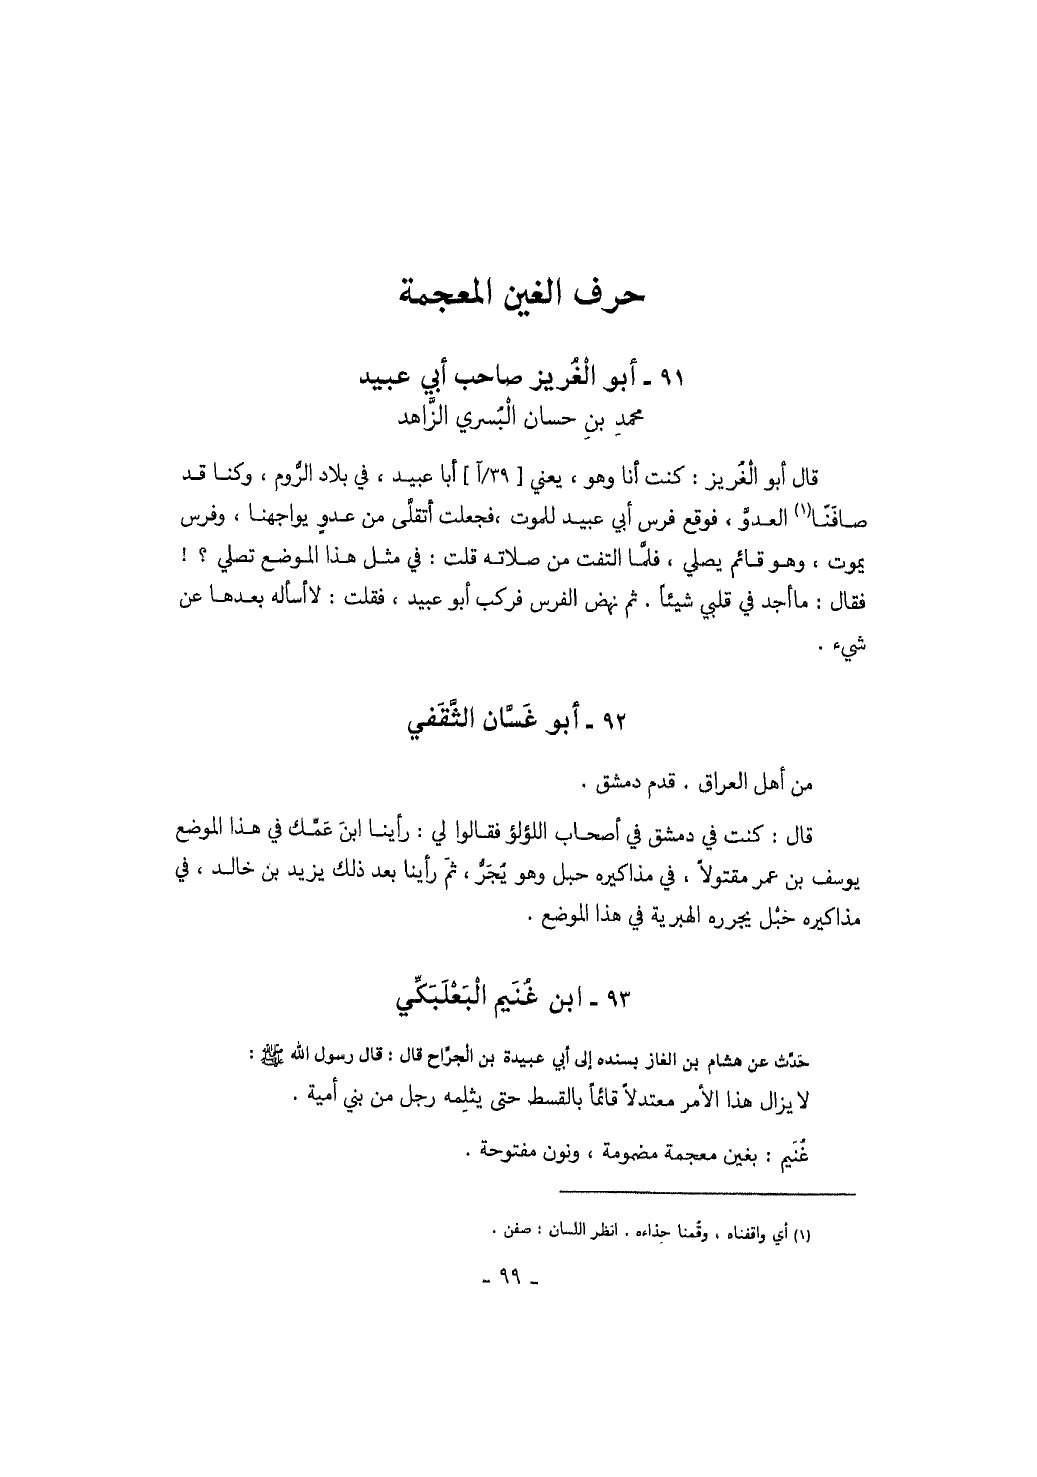 حرف الغين المعجمة
٩١ ـ أبو الْغُريز صاحب أبي عبيد
محمدِ بنِ حسان الْبُسري الزَّاهد
قال أبو الْغُريز : كنت أنا وهو ، يعني [ ٣٩/آ ] أبا عبيد ، في بلاد الرُّوم ، وكنا قد
صافَنَّا(١) العدوَّ ، فوقع فرس أبي عبيد للموت ،فجعلت أتقلَّى من عدوٍ يواجهنا ، وفرس
يموت ، وهو قائم يصلي ، فلمَّا التفت من صلاته قلت : في مثل هذا الموضع تصلي ؟ !
فقال : ماأجد في قلبي شيئاً . ثم نهض الفرس فركب أبو عبيد ، فقلت : لاأسأله بعدها عن
شيء .
٩٢ ـ أبو غَسَّان الثَّقَفي
من أهل العراق . قدم دمشق .
قال : كنت في دمشق في أصحاب اللؤلؤ فقالوا لي : رأينا ابنَ عَمِّك في هذا الموضع
يوسف بن عمر مقتولاً ، في مذاكيره حبل وهو يُجَرُّ ، ثمَ رأينا بعد ذلك يزيد بن خالد ، في
مذاكيره حَبْل يجرره الهبرية في هذا الموضع .
٩٣ ـ ابن غُنَيم الْبَعْلَبَكِّي
حَدَّث عن هشام بن الغاز بسنده إلى أبي عبيدة بن الْجرَّاح قال : قال رسول الله ﷺ :
لا يزال هذا الأمر معتدلاً قائماً بالقسط حتى يثلِمه رجل من بني أمية .
غُنَيم : بغين معجمة مضمومة ، ونون مفتوحة .
(١) أي واقفناه ، وقُمنا حِذاءه . انظر اللسان : صفن .
ـ ٩٩ ـ